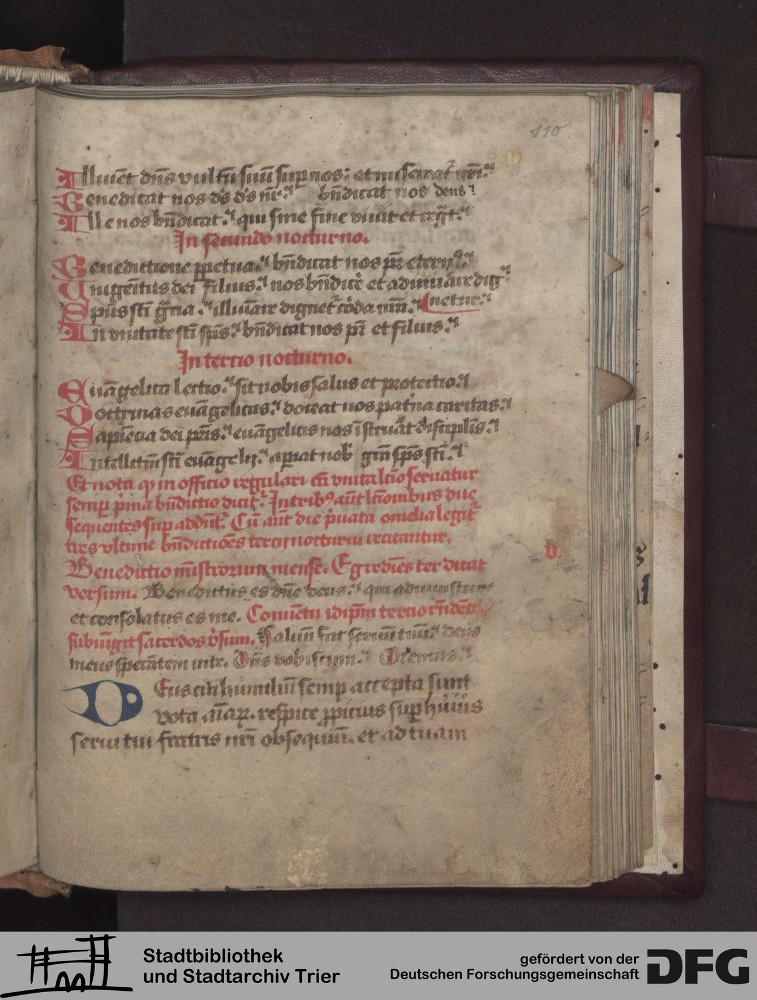 110
Illuiet dn̄s vultū suū sup nos: et misereat nr̄i.
Benedicat nos ds ds nr̄. bn̄dicat nos deus
Ille nos bn̄dicat. qui sine fine viuit et regt.
In secundo nocturno.
Benedictione ppetua. bn̄dicat nos pr̄ etern9.
Unigenitus dei filius. nos bn̄dice et adiuuare dig
Spūs sti grā. illuīare dignet corda nr̄a. netur.
In vnitate sti sps. bn̄dicat nos pr̄ et filius.
In tercio nocturno.
Euāgelica lectio. sit nobis salus et protectio.
Doctrinas euāgelicas. doceat nos patn̄a caritas.
Sapiēcia dei pr̄is. euāgelicis nos īstruat disciplis.
Intellectm sti euāgelij. apiat nob grā sps sti.
Et nota q in officio regulari cū vnica lcō seruatur
semp pma bn̄dictio dicit. In trib9 aūt lcōnibus due
sequentes sup addūt. Cū aūt die puata omelia legit
tres vltime bn̄dictiōes tercij nocturni recitantur.
Benedictio mīstrorum mense. Egrediēs ter dicat
versum. Benedictus es dn̄e deus. qui adiuuisti me
et consolatus es me. Conuētu idipm tercio rn̄dēte
v.
subiūgit sacerdos vsum. Saluū fac seruū tuū. deus
meus sperātem in te. Dn̄s vobiscum. Oremus.
Deus cui humiliū semp accepta sunt
vota aīarum. respice ppicius sup huius
serui tui fratris nr̄i obsequiū. et ad tuam
Stadtbibliothek
und Stadtarchiv Trier
gefördert von der
Deutschen Forschungsgemeinschaft
DFG